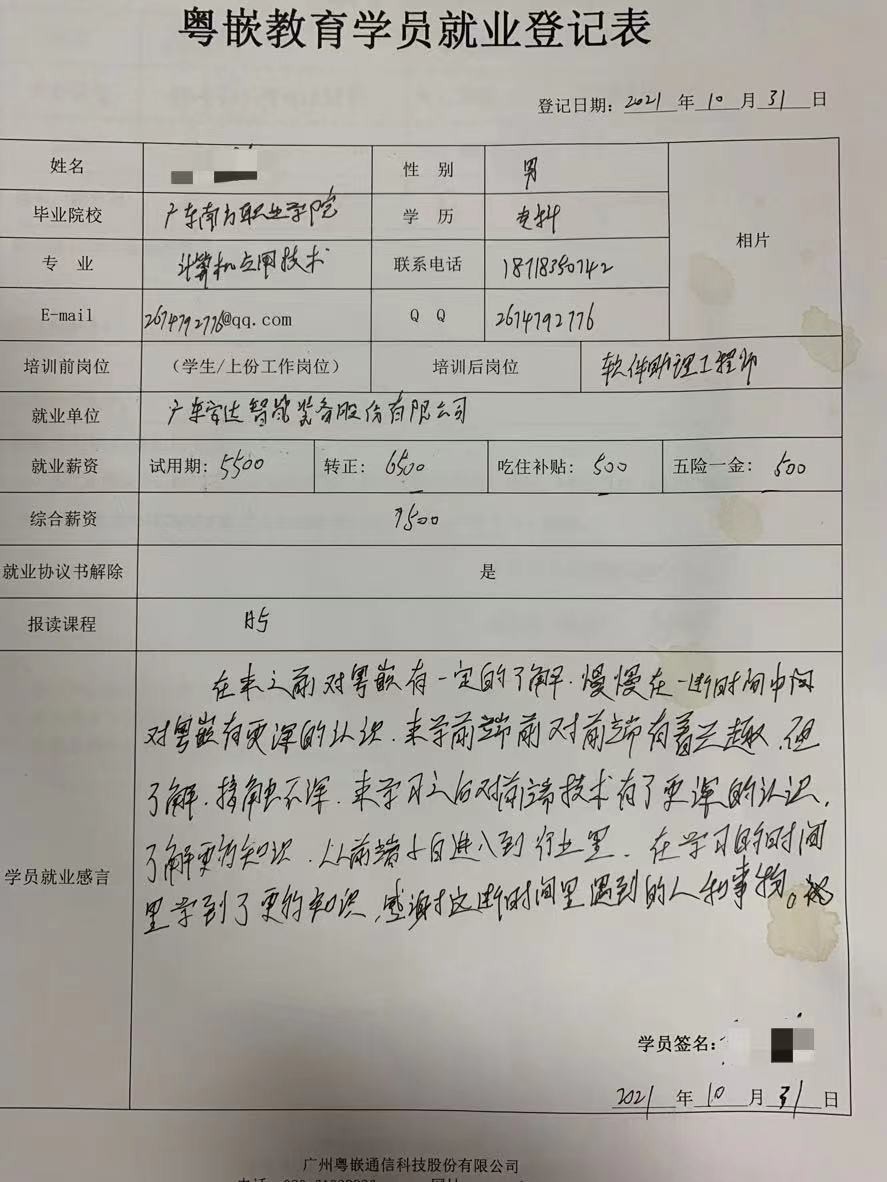 粤嵌教育学员就业登记表
登记日期：2021 年 10 月 31 日
姓名 性 别 男
毕业院校 广东南方职业学院 学 历 专科 相片
专 业 计算机应用技术 联系电话 18718350742
E-mail 2674792776@qq.com Q Q 2674792776
培训前岗位 （学生/上份工作岗位） 培训后岗位 软件助理工程师
就业单位 广东宏达智能装备股份有限公司
就业薪资 试用期：5500 转正：6500 吃住补贴：500 五险一金：500
综合薪资 7500
就业协议书解除 是
报读课程 H5
在来之前对粤嵌有一定的了解.慢慢在一段时间中间
对粤嵌有更深的认识.来学前端前对前端有着兴趣,但
了解.接触不深.来学习之后对前端技术有了更深的认识,
了解更多知识.从前端小白进入到行业里.在学习的时间
学员就业感言
里学到了更多知识,感谢这段时间里遇到的人和事物。
学员签名：
2021 年 10 月 31 日
广州粤嵌通信科技股份有限公司